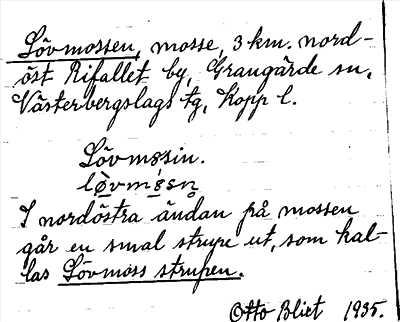 Lövmossen, mosse, 3 km. nord-
öst Rifallet by, Grangärde sn,
Västerbergslags tg, Kopp l.
Lövmosin.
I nordöstra ändan på mossen
går en smal strupe ut, som kal-
las Lövmoss strupen.
Otto Blixt 1935.